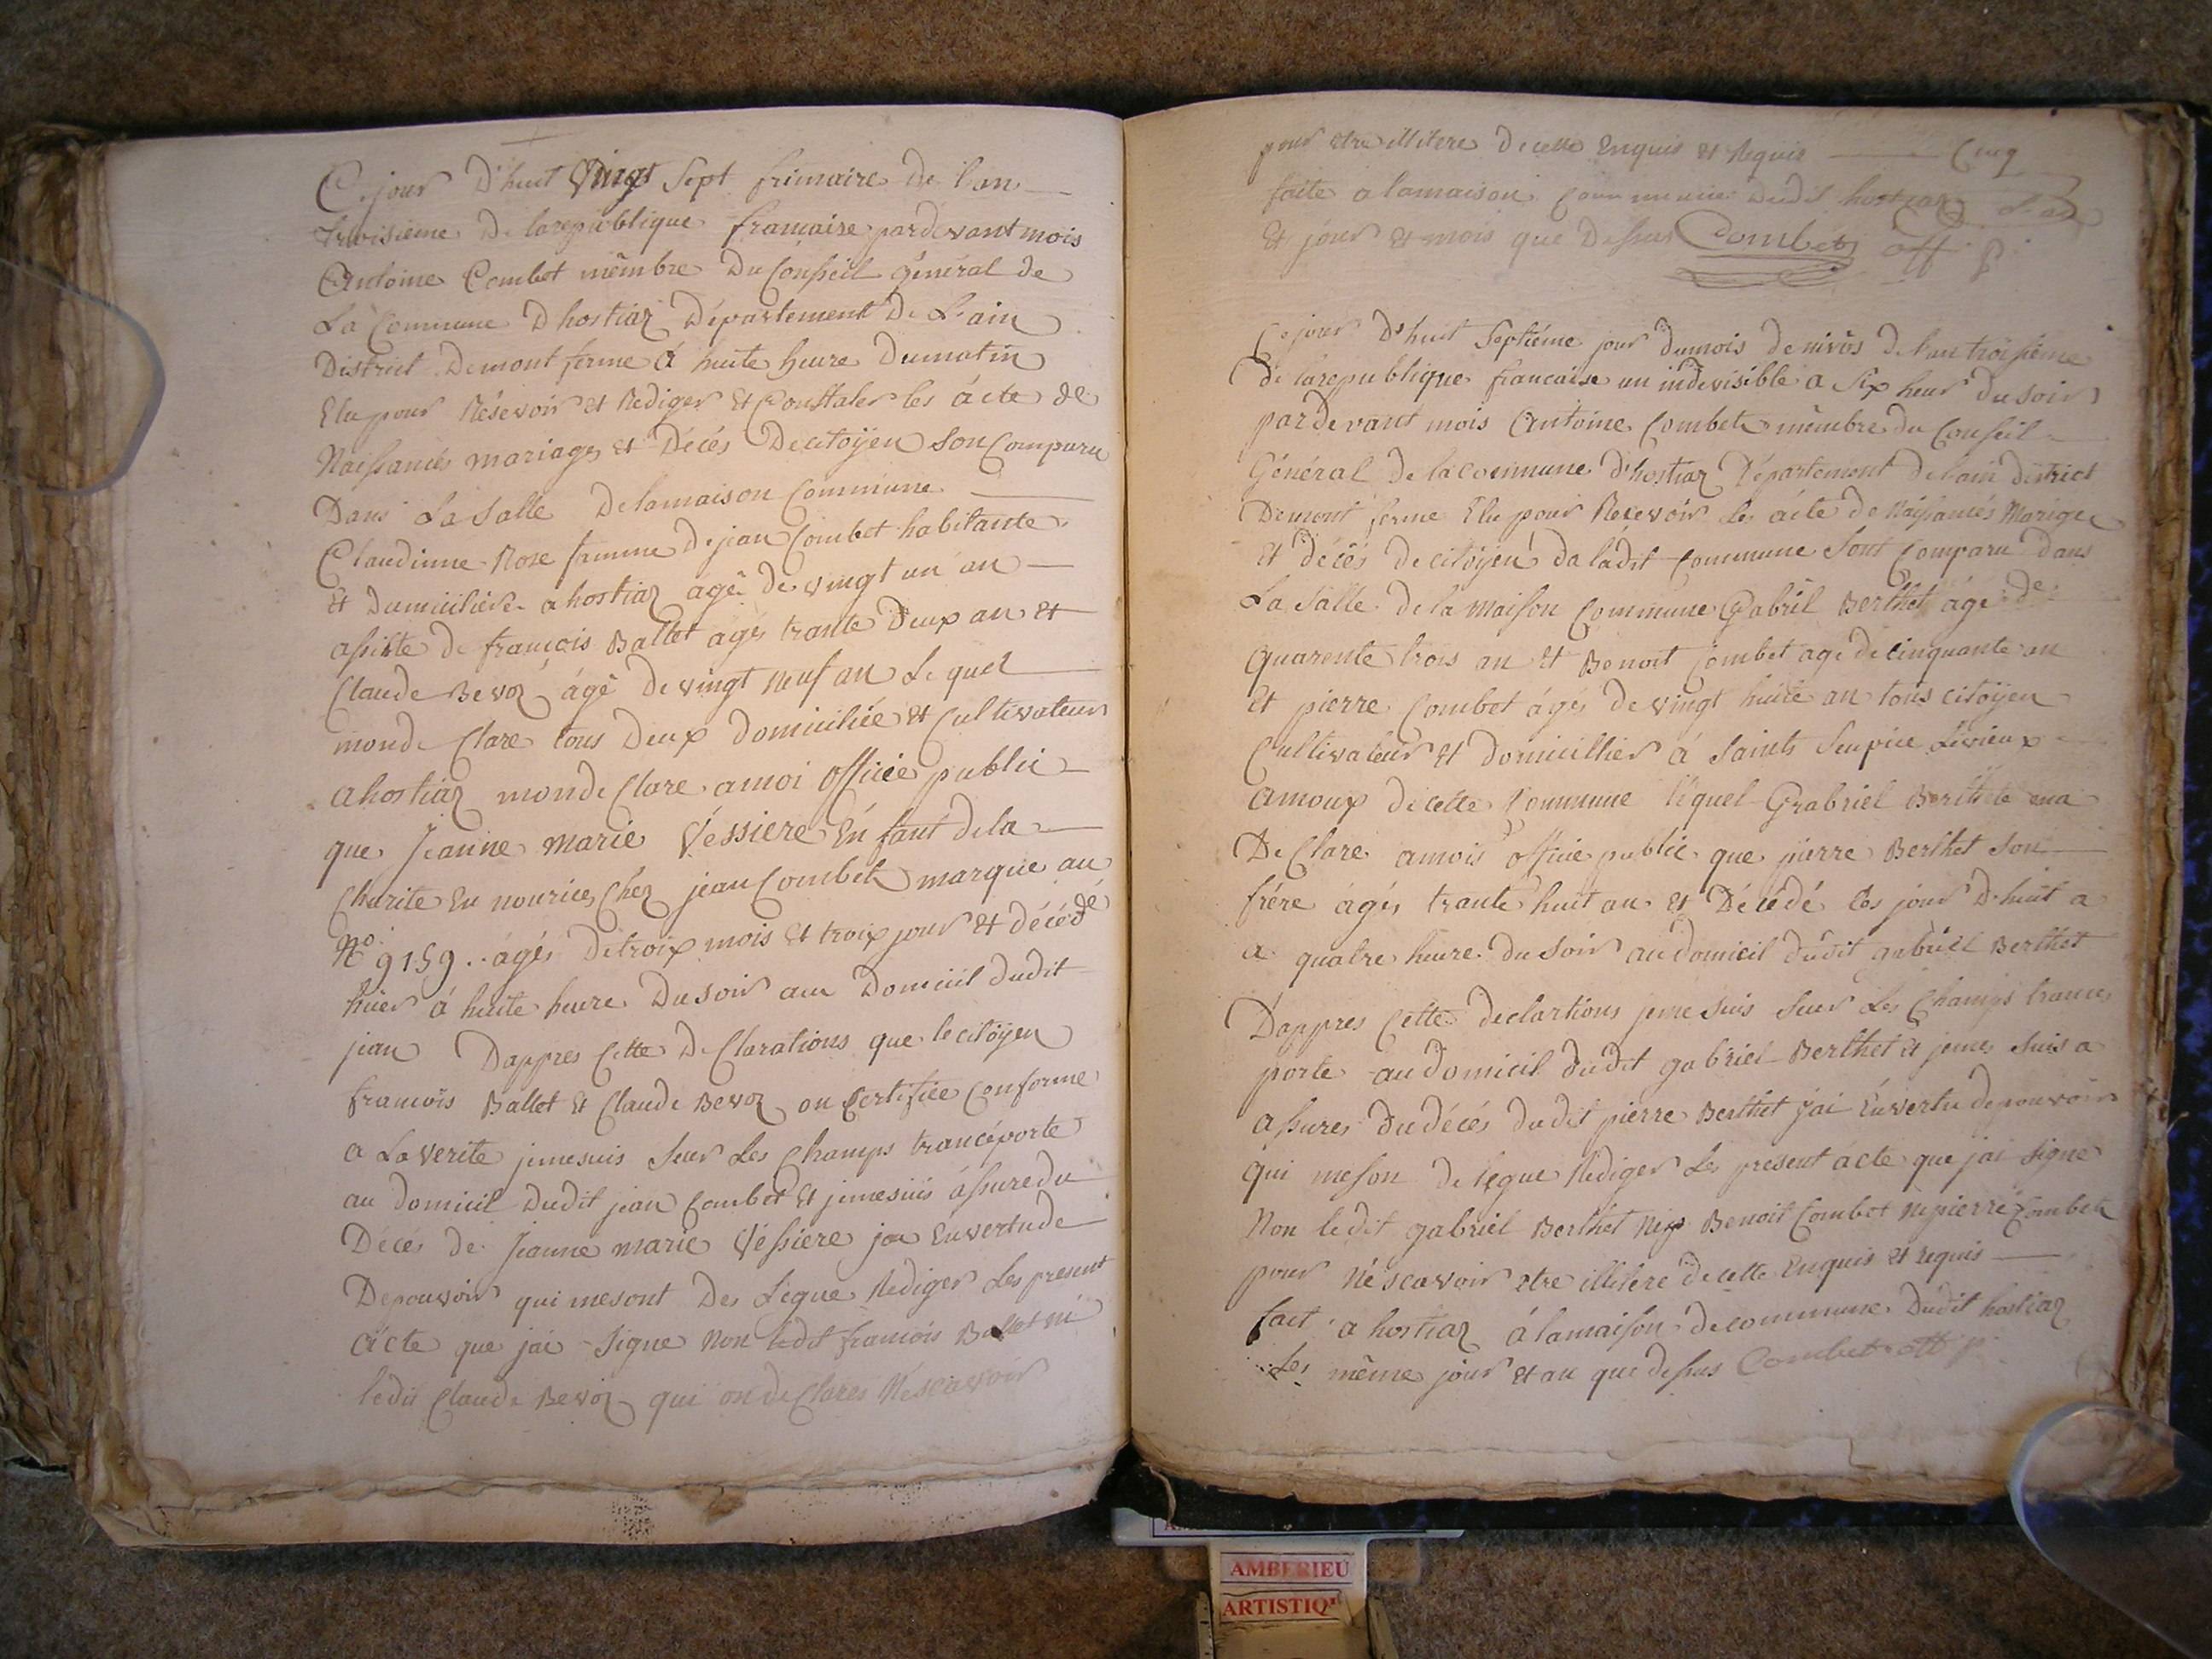 Ce jour D'huit Vingt Sept frimaire de l'an
troisieme De larepublique francaire pardevant mois
Antoine Combet mêmbre Du Conseil général de
La Commune D hostiaz Département De L'ain
District Demont ferme á huite heure Dumatin
Elu pour Résevoir et Rediger Et Constater les ácte de
Naissances mariages et Décés Decitoÿen Son Comparu
Dans La Salle Delamaison Commune
Claudinne Rose famme De jean Combet habitante
Et Dumiciliée a hostiaz agê de vingt un an
assiste de françois Ballet agés trante Deux an et
Claude Bevoz ágê de vingt neuf an Le quel
monde Clare tous Deux Domiciliée et Cultivateur
a hostiaz monde Clare amoi officie public
que Jeanne Marie Véssiere Én fant dela
Charite En nourices Chez jean Combet marque au
No 9159 .. agés De troix mois et troix jour et décédé
hier á huite heure Du soir au Domicil dudit
jean Dappres Cette De Clarations que le citoÿen
francois Ballet Et Claude Bevoz on Certifiée Conforme
a La verite jemesuis Seur Les Champs trancéporte
au domicil Dudit jean Combet Et jemesuis ássuredu
Décés de Jeanne marie Véssiere jai Envertude
Depouvoir qui mesont Des Légue Rediger Les present
ácte que jai Signe Non ledit francois Ballet ni
ledit Claude Bevoz qui on de Clares Néscavoir
pour etre illitere De cette Enquis et Requis Cinq
faite a lamaison Commune dudit hostiaz L'an
Et jour et mois que Dessus Combet off p
Ce jour D'huit Septiéme jour dumois de nivôs de l'an troisiéme
De larepublique francaise un indevisible a Six heur du soir
pardevant mois Antoine Combet mêmbre du Conseil
Général de la commune d'hostiaz Département de l'ain district
Demont ferme Elu pour Recevoir Les ácte de Naissancés Mariges
Et décés de citoÿen de ladit commune Sont Comparu dans
La Salle de la Maison Commune Gabriel Berthet ágé de
quarente trois an et Benoit Combet age de cinquante an
Et pierre Combet ágés de vingt huite an tous citoÿen
Cultivateur et domicillier á Saints Seupice Levieux
amoux de cette Commune léquel Grabriel Berthete ma
De Clare amois officie public que pierre Berthet Son
frére ágés trante huit an et Décédé les jour D'huit a
a quatre heure du soir au domicil dudit gabriel Berthet
Dappres Cette declartions jeme suis Seur Les Champs trances
porte au domicil dudit gabriel Berthet Et jemes suis a
assures du décés dudit pierre Berthet j'ai Envertu depouvoir
qui meson de legue Rediger Les present ácte que jai signe
Non ledit gabriel Berthet Ny Benoit Combet ny pierre Combet
pour né scavoir etre illitere de cette Enquis et requis
fait a hostiaz á lamaison de commune Dudit hostiaz
Les même jour et an que dessus Combet off p
AMBERIEU
ARTISTIQ